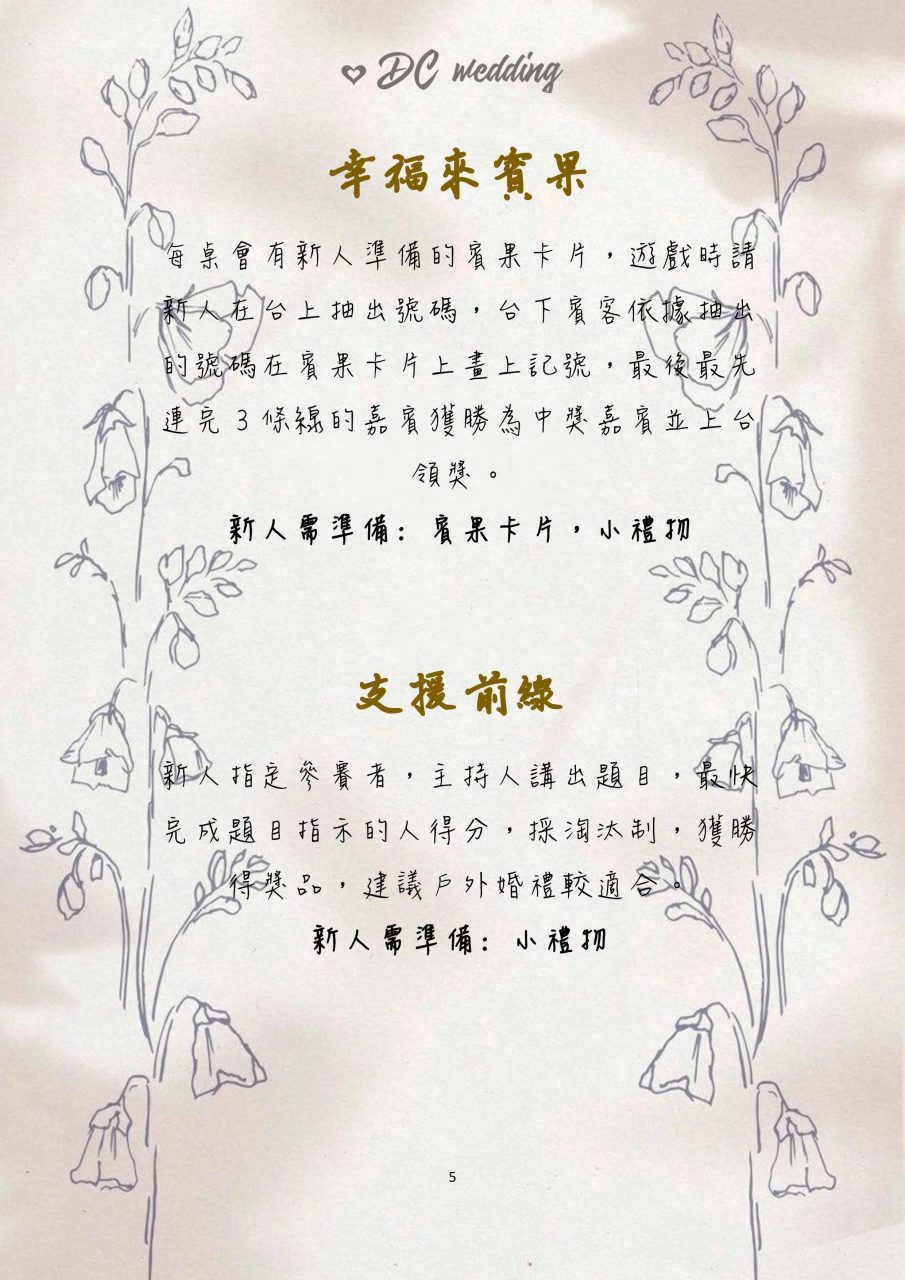 DC wedding
幸福來賓果
每桌會有新人準備的賓果卡片，遊戲時請
新人在台上抽出號碼，台下賓客依據抽出
的號碼在賓果卡片上畫上記號，最後最先
連完3條線的嘉賓獲勝為中獎嘉賓並上台
領獎。
新人需準備：賓果卡片，小禮物
支援前線
新人指定參賽者，主持人講出題目，最快
完成題目指示的人得分，採淘汰制，獲勝
得獎品，建議戶外婚禮較適合。
新人需準備：小禮物
5